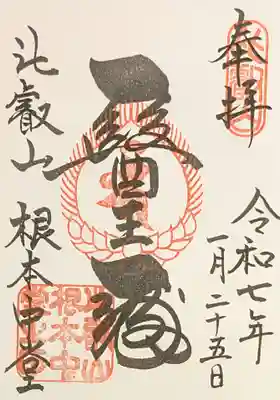 奉拝
令和七年
一月二十五日
醫王殿
比叡山 根本中堂